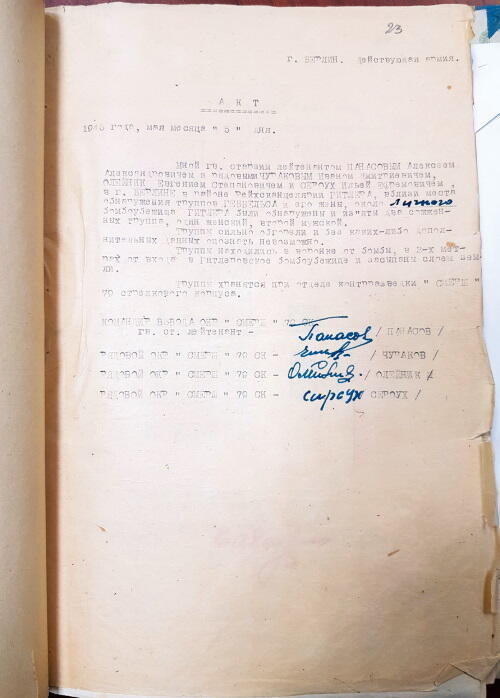 23
г. БЕРЛИН. Действующая армия.
А К Т
1945 года, мая месяца " 5 " дня.
Мной гв. старшим лейтенантом ПАНАСОВЫМ Алексеем
Александровичем и рядовыми ЧУРАКОВЫМ Иваном Дмитриевичем,
ОЛЕЙНИК Евгением Степановичем и СЕРОУХ Ильей Ефремовичем ,
в г. БЕРЛИНЕ в районе Рейхсканцелярии ГИТЛЕРА, вблизи места
обнаружения трупов ГЕББЕЛЬСА и его жены, около личного
бомбоубежища ГИТЛЕРА были обнаружены и изъяты два сожжен-
ных трупа, один женский, второй мужской.
Трупы сильно обгорели и без каких-либо допол-
нительных данных опознать невозможно.
Трупы находились в воронке от бомбы, в 3-х мет-
рах от входа в Гитлеровское бомбоубежище и засыпаны слоем зем-
ли.
Трупы хранятся при отделе контрразведки " СМЕРШ "
79 стрелкового корпуса.
КОМАНДИР ВЗВОДА ОКР " СМЕРШ " 79 СК
гв. ст. лейтенант - Панасов / ПАНАСОВ /
РЯДОВОЙ ОКР " СМЕРШ " 79 СК - / ЧУРАКОВ /
РЯДОВОЙ ОКР " СМЕРШ " 79 СК - Олейник / ОЛЕЙНИК /
РЯДОВОЙ ОКР " СМЕРШ " 79 СК - сироух СЕРОУХ /